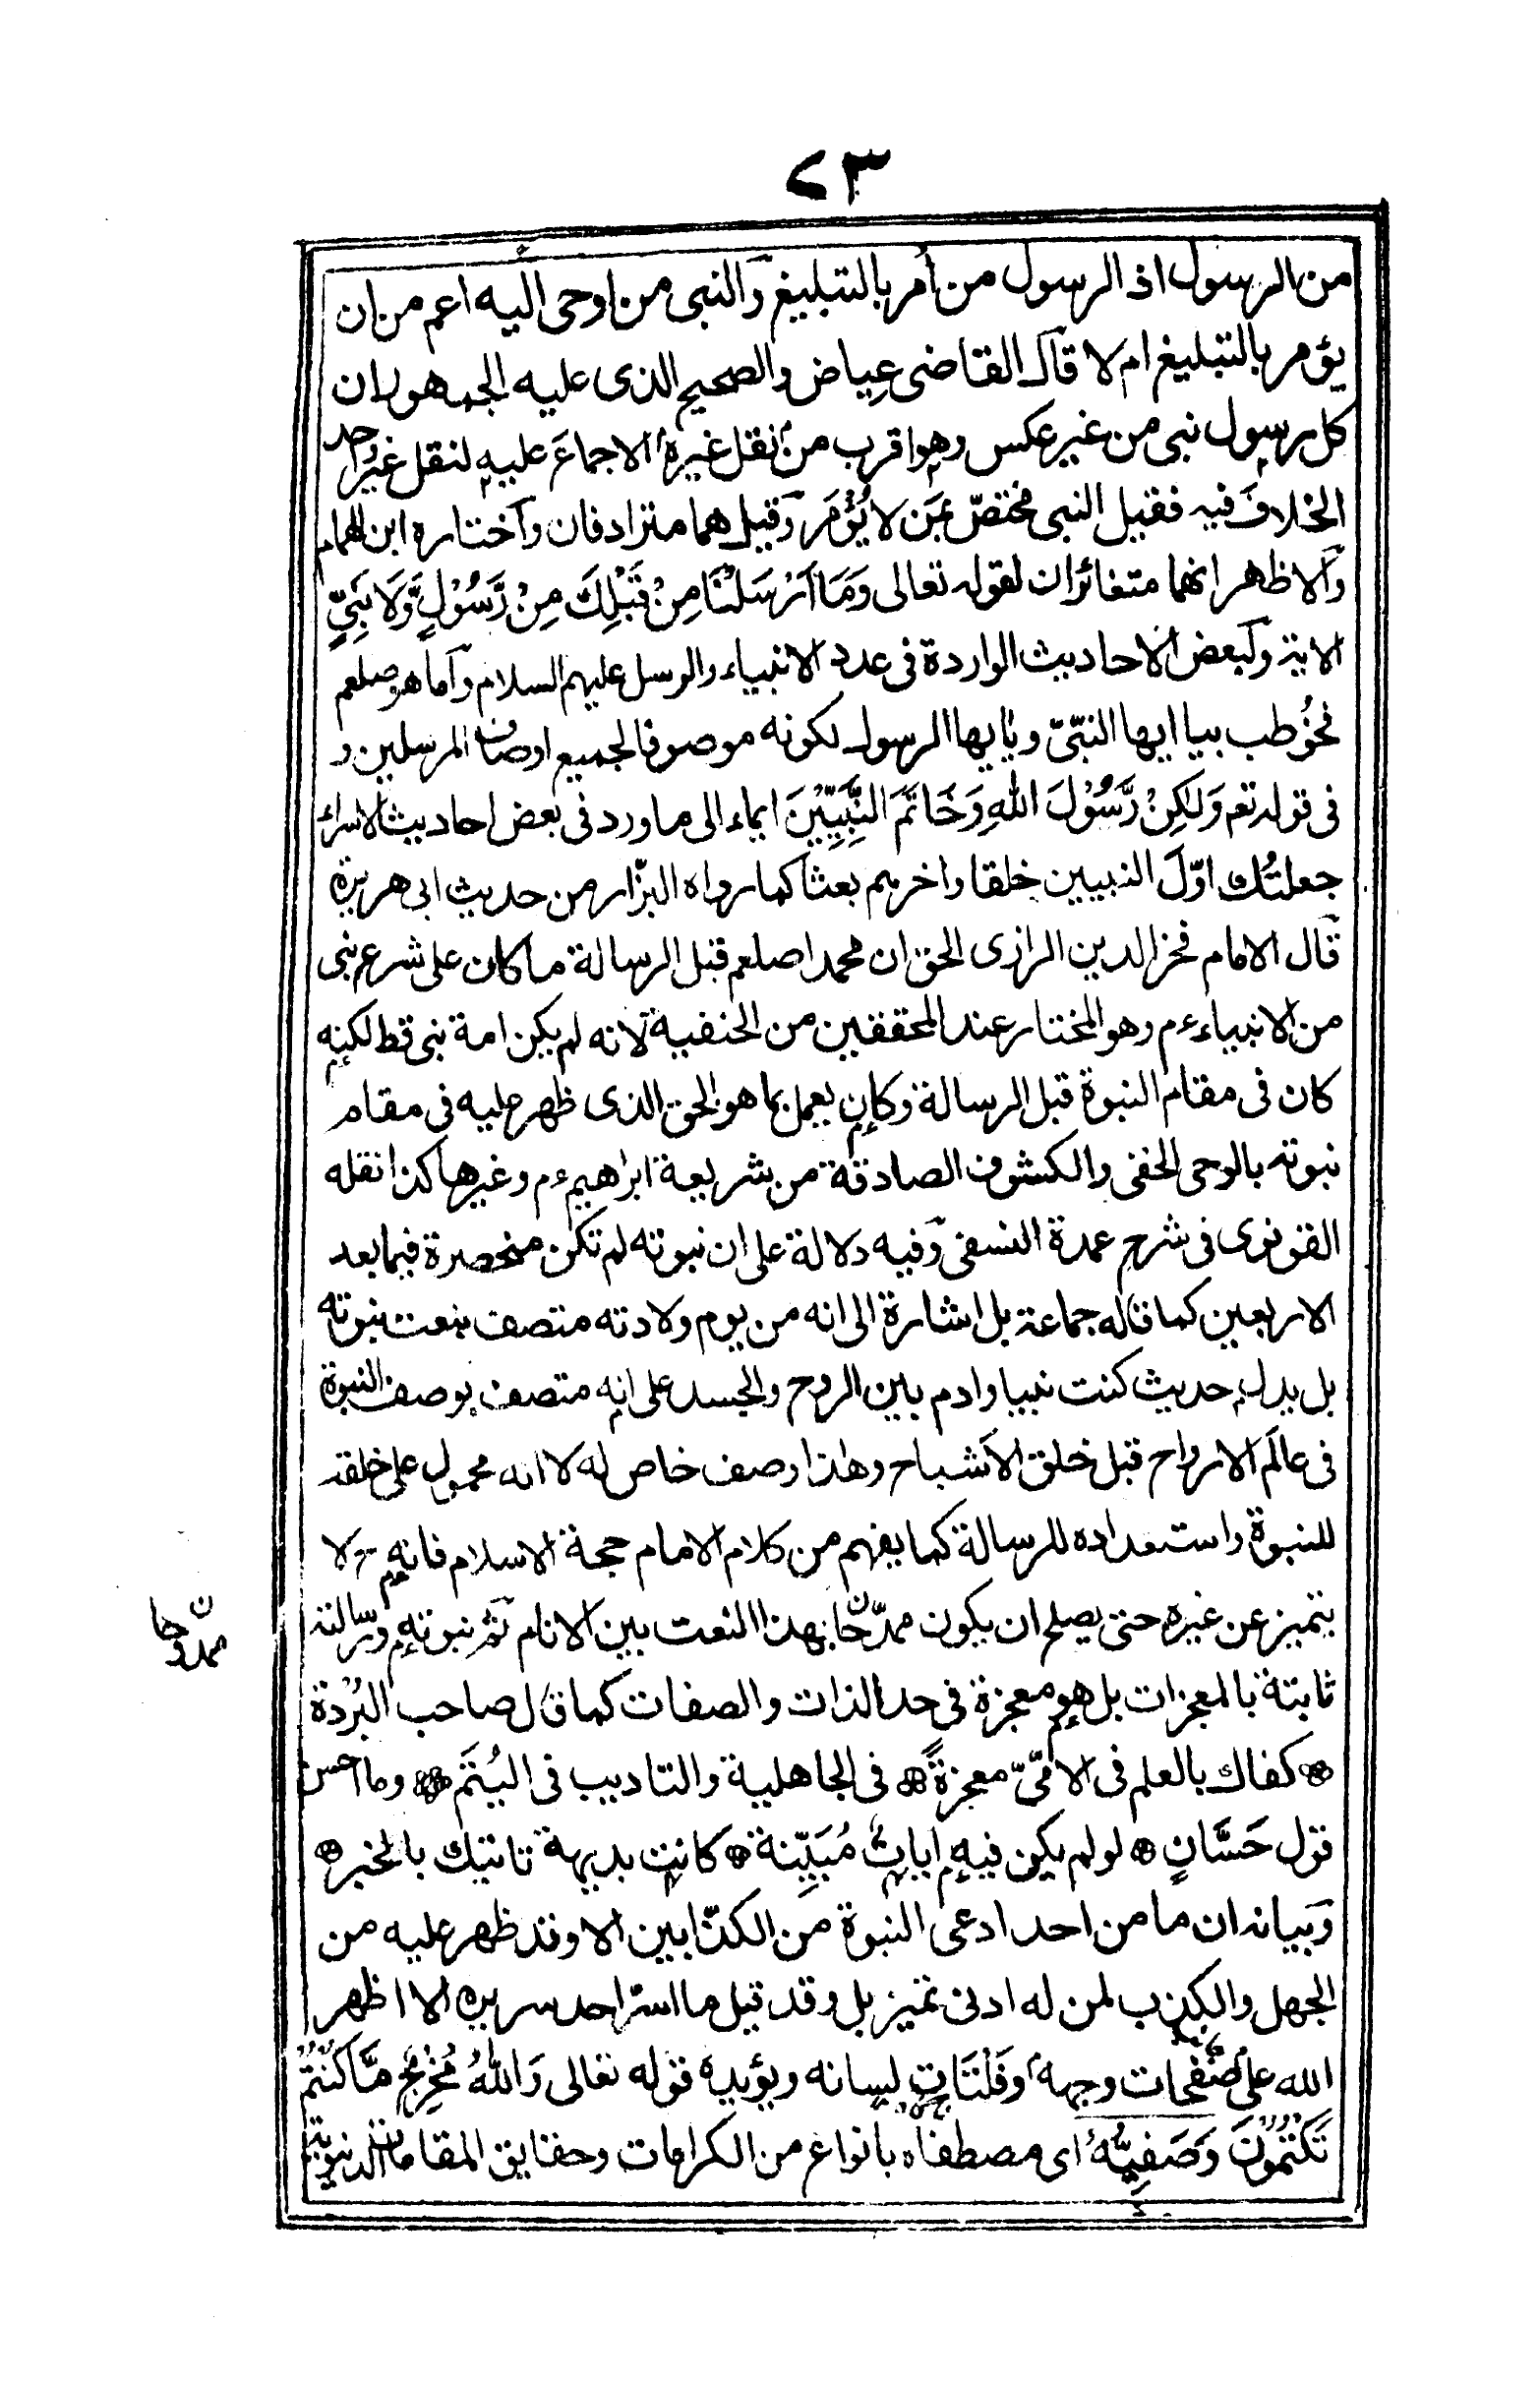 ٧٣
من الرسول اذ الرسول من أمر بالتبليغ والنبى من اوحى اليه اعم من ان
يؤمر بالتبليغ ام لا قال القاضى عِياض والصحيح الذى عليه الجمهور ان
كل رسول نبى من غير عكس وهو اقرب من نقل غيره الاجماعَ عليه لنقل غير واحد
الخلافَ فيه فقيل النبى مختصّ بمَن لا يُؤمَر وقيل هما مترادفان واختاره ابن الهمام
والاظهر انهما متغائران لقوله تعالى وَمَا اَرْسَلْنَا مِنْ قَبْلِكَ مِنْ رَّسُوْلٍ وَّلَا نَبِيٍّ
الاية ولبعض الاحاديث الواردة فى عدد الانبياء والرسل عليهم السلام واما هو صلعم
فخُوطب بيا ايها النبىّ ويا يها الرسول لكونه موصوفا لجميع اوصاف المرسلين و
فى قوله تعم وَلٰكِنْ رَّسُوْلَ اللهِ وَخَاتَمَ النَّبِيِّيْنَ ايماء الى ما ورد فى بعض احاديث الاسراء
جعلتُك اوّلَ النبيين خلقا واخرهم بعثا كما رواه البزّار من حديث ابى هريرة
قال الامام فخر الدين الرازى الحق ان محمدا صلعم قبل الرسالة ما كان على شرع نبى
من الانبياء ءم وهو المختار عند المحققين من الحنفية لانه لم يكن امة نبى قط لكنه
كان فى مقام النبوة قبل الرسالة وكان يعمل بما هو الحق الذى ظهر عليه فى مقام
نبوته بالوحى الخفى والكشوف الصادقة من شريعة ابراهيم ءم وغيرها كذا نقله
القونوى فى شرح عمدة النسفى وفيه دلالة على ان نبوته لم تكن منحصرة فيما بعد
الاربعين كما قاله جماعة بل اشارة الى انه من يوم ولادته متصف بنعت نبوته
بل يدل حديث كنت نبيا وادم بين الروح والجسد على انه متصف بوصف النبوة
فى عالَم الارواح قبل خلق الاَشباح وهذا وصف خاص له لا انه محمول على خلقه
للنبوة واستعداده للرسالة كما يفهم من كلام الامام حجة الاسلام فانه ح لا
يتميز عن غيره حتى يصلح ان يكون ممدّحا بهذا النعت بين الانام ثم نبوته ورسالته
ثابتة بالمعجزات بل هو معجزة فى حد الذات والصفات كما قال صاحب البُرْدة
كفاك بالعلم فى الامّىّ معجزةً فى الجاهلية والتاديب فى اليُتَم وما احسن
قول حَسَّانٍ لو لم يكن فيه اياتٌ مُبَيِّنة كانت بديهة تاتيك بالخبر
وبيانه ان ما من احد ادعى النبوة من الكذّابين الا وقد ظهر عليه من
الجهل والكذب لمن له ادنى تميز بل وقد قيل ما اسرّ احد سريرة الا اظهر
الله على صفحات وجهه وفَلَتَاتِ لسانه ويؤيده قوله تعالى وَاللهُ مُخْرِجٌ مَّا كُنْتُمْ
تَكْتُمُوْنَ وَصَفِيُّهُ اى مصطفاه بانواع من الكرامات وحقايق المقامات الدنيوية
ن
ممدوحا